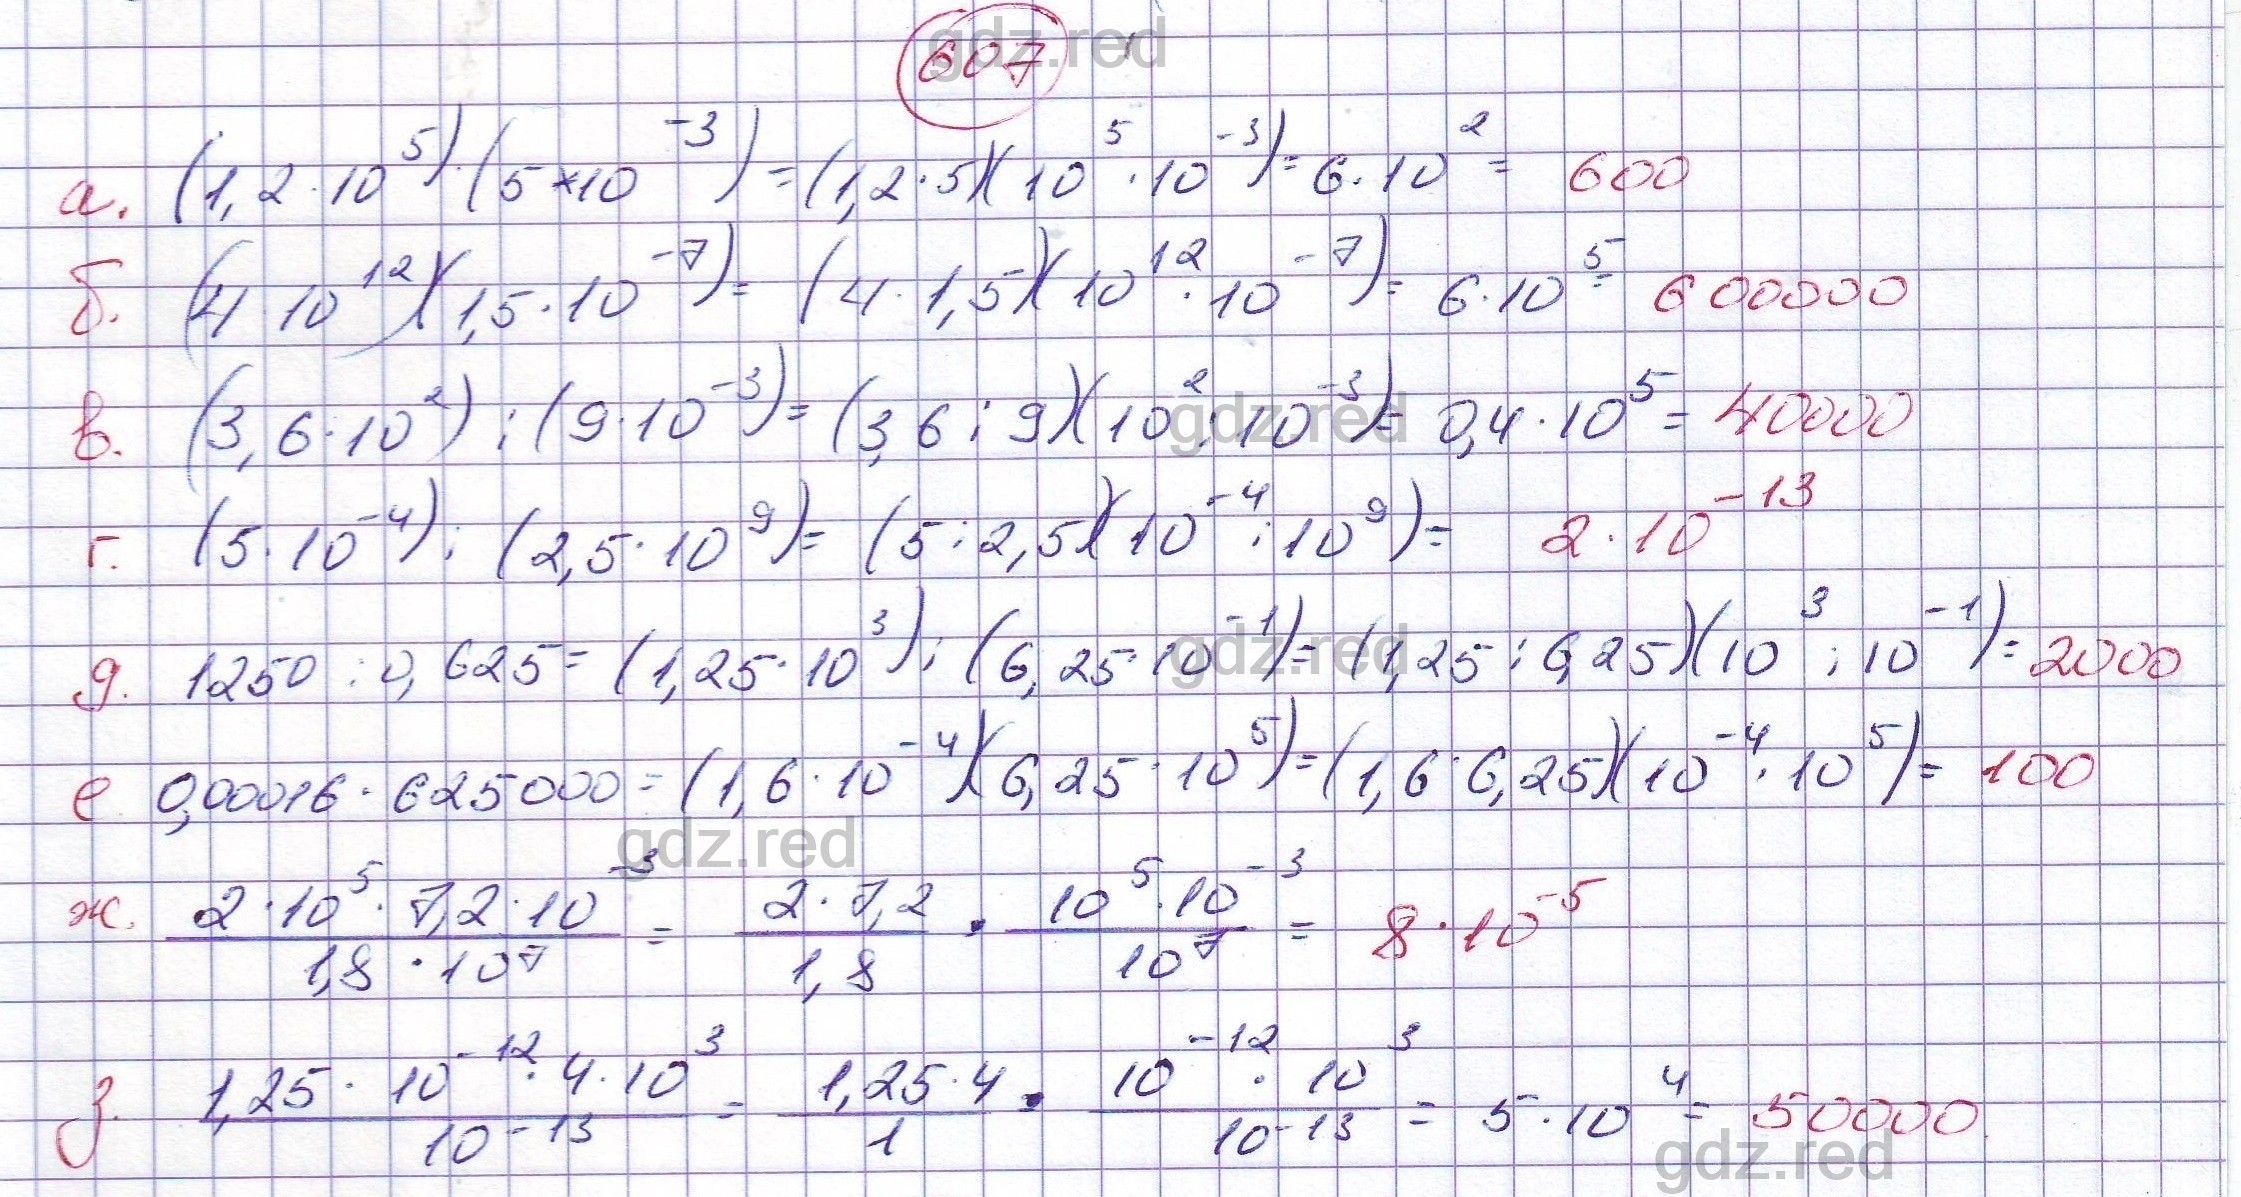 607
а. (1,2·10⁵)·(5×10⁻³)=(1,2·5)(10⁵·10⁻³)=6·10²= 600
б. (4·10¹²)(1,5·10⁻⁷)=(4·1,5)(10¹²·10⁻⁷)=6·10⁵= 600000
в. (3,6·10²):(9·10⁻³)=(3,6:9)(10²:10⁻³)=0,4·10⁵=40000
г. (5·10⁻⁴):(2,5·10⁹)=(5:2,5)(10⁻⁴:10⁹)= 2·10⁻¹³
д. 1250:0,625=(1,25·10³):(6,25·10⁻¹)=(1,25:6,25)(10³:10⁻¹)=2000
е. 0,00016·625000=(1,6·10⁻⁴)(6,25·10⁵)=(1,6·6,25)(10⁻⁴·10⁵)=100
ж. (2·10⁵·7,2·10⁻³)/(1,8·10⁷) = (2·7,2)/(1,8) · (10⁵·10⁻³)/(10⁷) = 8·10⁻⁵
з. (1,25·10⁻¹²·4·10³)/(10⁻¹³) = (1,25·4)/1 · (10⁻¹²·10³)/(10⁻¹³) = 5·10⁴= 50000
gdz.red
gdz.red
gdz.red
gdz.red
gdz.red